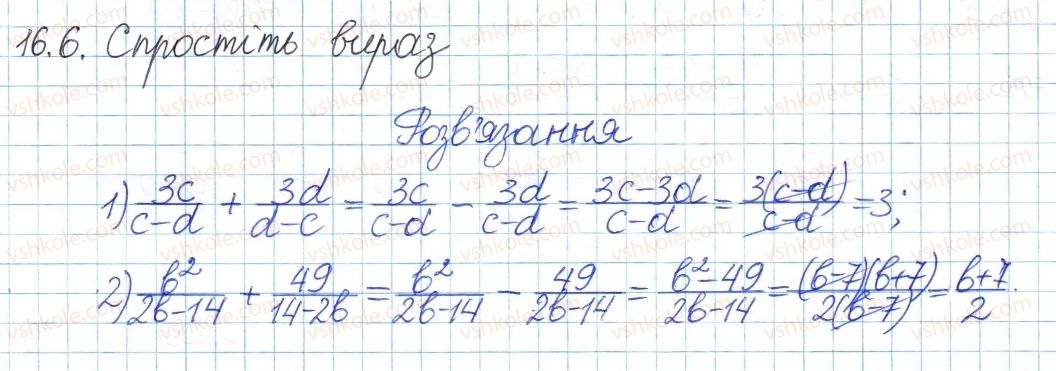 16.6. Спростіть вираз
Розв'язання
1) 3c/(c-d) + 3d/(d-c) = 3c/(c-d) - 3d/(c-d) = (3c-3d)/(c-d) = 3(c-d)/(c-d) = 3;
2) b²/(2b-14) + 49/(14-2b) = b²/(2b-14) - 49/(2b-14) = (b²-49)/(2b-14) = (b-7)(b+7)/2(b-7) = (b+7)/2.